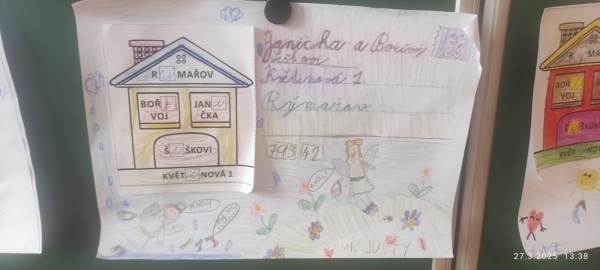 RýMAŘOV
BOŘi
VOJ
JANi
ČKA
ŠiŠKOVI
KVĚTiNOVÁ 1
Janička a Bořivoj
Šiškovi
Květinová 1.
Rýmařov
793 42
AHOJ
AHOJ
27.3.2025 13:38